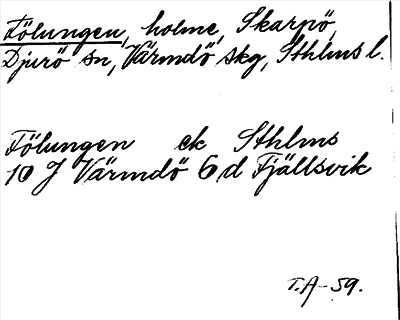 Fölungen, holme, Skarpö,
Djurö sn, Värmdö skg, Sthlms l.
Fölungen ek Sthlms
10 J Värmdö 6 d Fjällsvik
T.A-59.